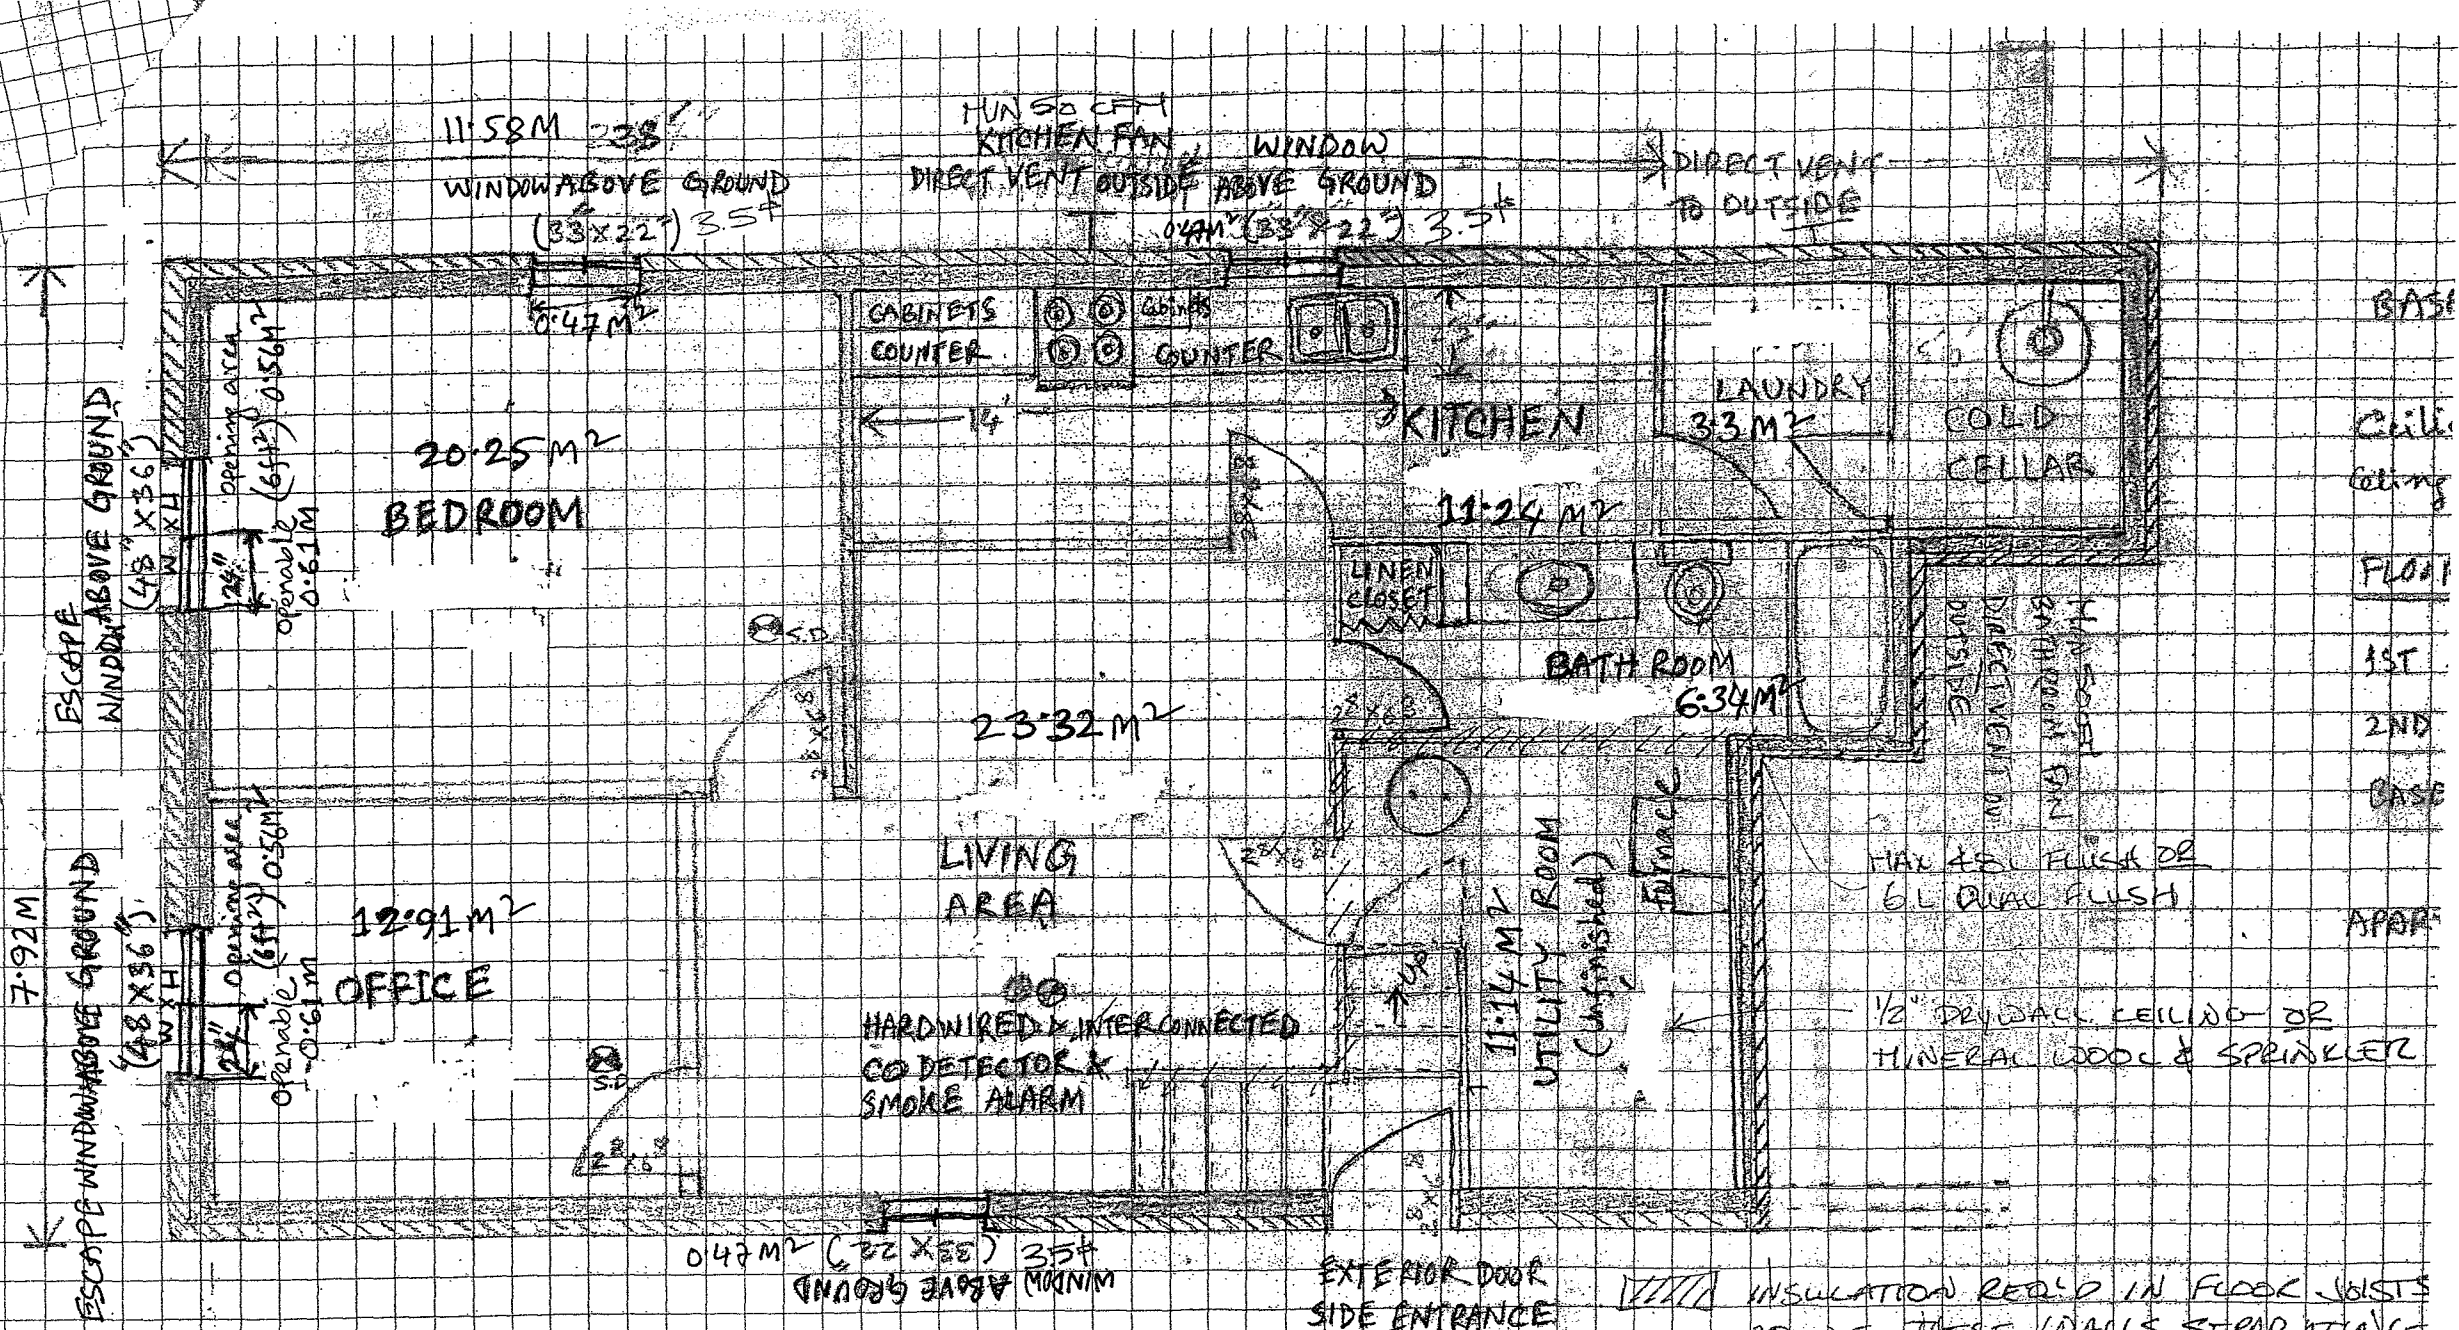 11.58M
WINDOW ABOVE GROUND
(33"x22")
MIN 50 CFM
KITCHEN FAN
DIRECT VENT OUTSIDE
WINDOW
ABOVE GROUND
0.47M² (33"x22")
DIRECT VENT
TO OUTSIDE
0.47 M²
CABINETS
COUNTER
Cabinets
COUNTER
14'
KITCHEN
11.24 M²
28x68
LAUNDRY
3.3 M²
COLD
CELLAR
BAS
Ceili
Ceiling
FLOO
1ST
2ND
BASE
APAR
ESCAPE
WINDOW ABOVE GROUND
(48"X36")
W X H
24"
opening area
(6ft²) 0.56M²
openable
0.61M
20.25 M²
BEDROOM
S.D
28x68
LINEN
CLOSET
BATHROOM
6.34M²
28x68
MIN 50 CFM
BATHROOM FAN
DIRECT VENT ON
OUTSIDE
23.32 M²
LIVING
AREA
28x68
7.92M
ESCAPE WINDOW ABOVE GROUND
(48"X36")
W X H
24"
opening area
(6ft²) 0.56M²
openable
0.61M
12.91 M²
OFFICE
S.D
28x68
HARDWIRED & INTERCONNECTED
CO DETECTOR &
SMOKE ALARM
UP
11.14 M²
UTILITY ROOM
(unfinished)
Furnace
MAX 4.8L FLUSH OR
6L DUAL FLUSH
1/2" DRYWALL CEILING OR
MINERAL WOOL & SPRINKLER
28x68
0.47M² (33"X22")
WINDOW ABOVE GROUND
EXTERIOR DOOR
SIDE ENTRANCE
INSULATION REQ'D IN FLOOR JOISTS
THESE WALLS